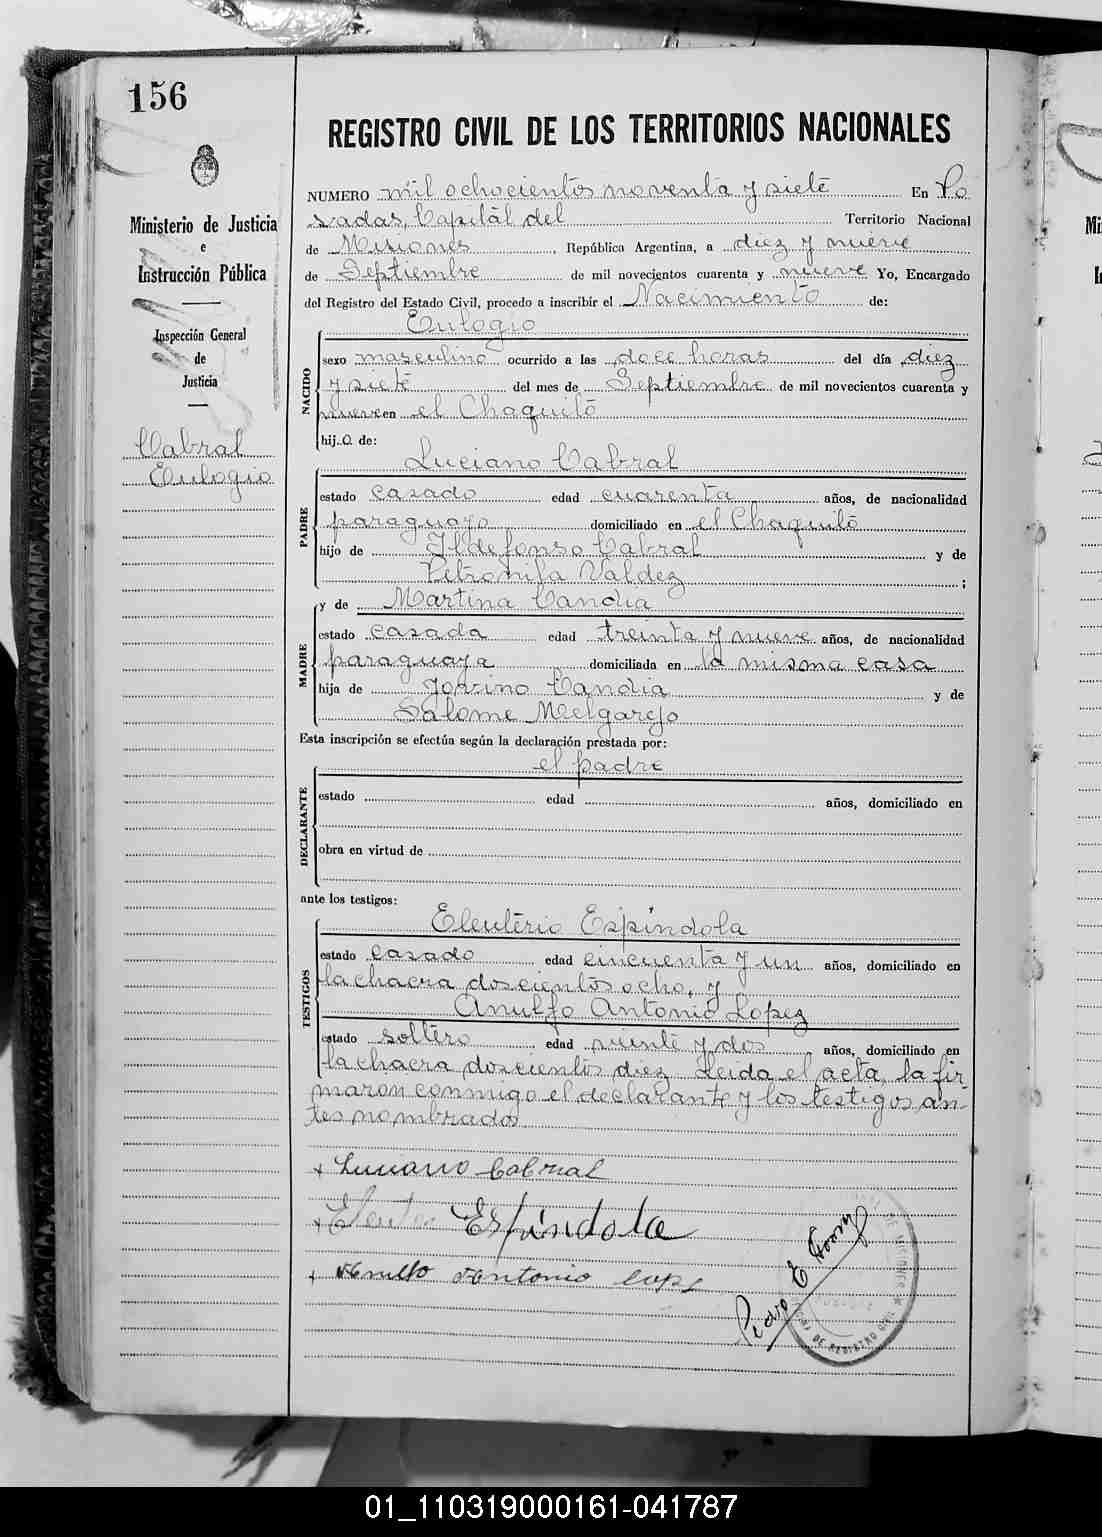 156
Ministerio de Justicia
e
Instrucción Pública
Inspección General
de
Justicia
Cabral
Eulogio
REGISTRO CIVIL DE LOS TERRITORIOS NACIONALES
NUMERO mil ochocientos noventa y siete En Po
sadas, Capital del Territorio Nacional
de Misiones, República Argentina, a diez y nueve
de Septiembre de mil novecientos cuarenta y nueve Yo, Encargado
del Registro del Estado Civil, procedo a inscribir el Nacimiento de:
NACIDO
Eulogio
sexo masculino ocurrido a las doce horas del día diez
y siete del mes de Septiembre de mil novecientos cuarenta y
nueve en el Chaquito
hij o de:
PADRE
Luciano Cabral
estado casado edad cuarenta años, de nacionalidad
paraguayo domiciliado en el Chaquito
hijo de Ildefonso Cabral y de
Petronila Valdez ;
MADRE
y de Martina Candia
estado casada edad treinta y nueve años, de nacionalidad
paraguaya domiciliada en la misma casa
hija de Jovino Candia y de
Salome Melgarejo
Esta inscripción se efectúa según la declaración prestada por:
DECLARANTE
el padre
estado edad años, domiciliado en
obra en virtud de
ante los testigos:
TESTIGOS
Eleuterio Espíndola
estado casado edad cincuenta y un años, domiciliado en
la chacra doscientos ocho, y
Anulfo Antonio Lopez
estado soltero edad veinte y dos años, domiciliado en
la chacra doscientos diez Leida el acta, la fir-
maron conmigo el declarante y los testigos an-
tes nombrados
+ Luciano Cabral
+ Eleuter Espíndola
+ Anulfo Antonio Lope
Pedro E
DE REGISTRO CIVIL
01_110319000161-041787